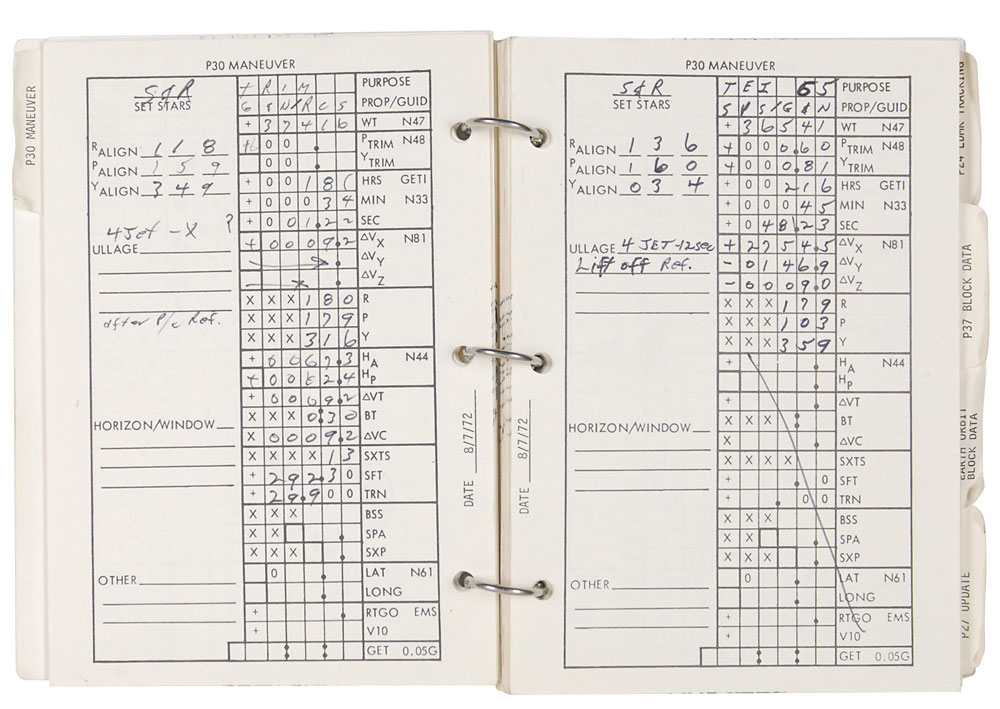 P30 MANEUVER
P30 MANEUVER
S&R
SET STARS
RALIGN 1 1 8
PALIGN 1 5 9
YALIGN 3 4 9
4Jet -X ?
ULLAGE
after P/C Ref.
HORIZON/WINDOW
OTHER
T R I M PURPOSE
G & N/R C S PROP/GUID
+ 3 7 4 1 6 WT N47
0 0 PTRIM N48
0 0 YTRIM
+ 0 0 1 8 HRS GETI
+ 0 0 0 3 4 MIN N33
+ 0 0 1.2 2 SEC
+ 0 0 0 9.2 ΔVX N81
ΔVY
ΔVZ
X X X 1 8 0 R
X X X 1 7 9 P
X X X 3 1 6 Y
+ 0 0 6 7.3 HA N44
+ 0 0 6 2.4 HP
+ 0 0 0 9.2 ΔVT
X X X 0:3 0 BT
X 0 0 0 9.2 ΔVC
X X X X 1 3 SXTS
+ 2 9 2.3 0 SFT
+ 2 9.9 0 0 TRN
X X X BSS
X X SPA
X X X SXP
0 LAT N61
LONG
+ RTGO EMS
+ V10
GET 0.05G
DATE 8/7/72
DATE 8/7/72
P30 MANEUVER
S&R
SET STARS
RALIGN 1 3 6
PALIGN 1 6 0
YALIGN 0 3 4
ULLAGE 4 JET-12sec
Lift off Ref.
HORIZON/WINDOW
OTHER
T E I 6 5 PURPOSE
S P S/G & N PROP/GUID
+ 3 6 5 4 1 WT N47
+ 0 0 0.6 0 PTRIM N48
+ 0 0 0.8 1 YTRIM
+ 0 0 2 1 6 HRS GETI
+ 0 0 0 4 5 MIN N33
+ 0 4 8.2 3 SEC
+ 2 7 5 4.5 ΔVX N81
- 0 1 4 6.9 ΔVY
- 0 0 0 9.0 ΔVZ
X X X 1 7 9 R
X X X 1 0 3 P
X X X 3 5 9 Y
+ HA N44
HP
+ ΔVT
X X X BT
X ΔVC
X X X X SXTS
+ 0 SFT
+ 0 0 TRN
X X X BSS
X X SPA
X X X SXP
0 LAT N61
LONG
+ RTGO EMS
+ V10
GET 0.05G
P24 LDMK TRACKING
P37 BLOCK DATA
EARTH ORBIT
BLOCK DATA
P27 UPDATE